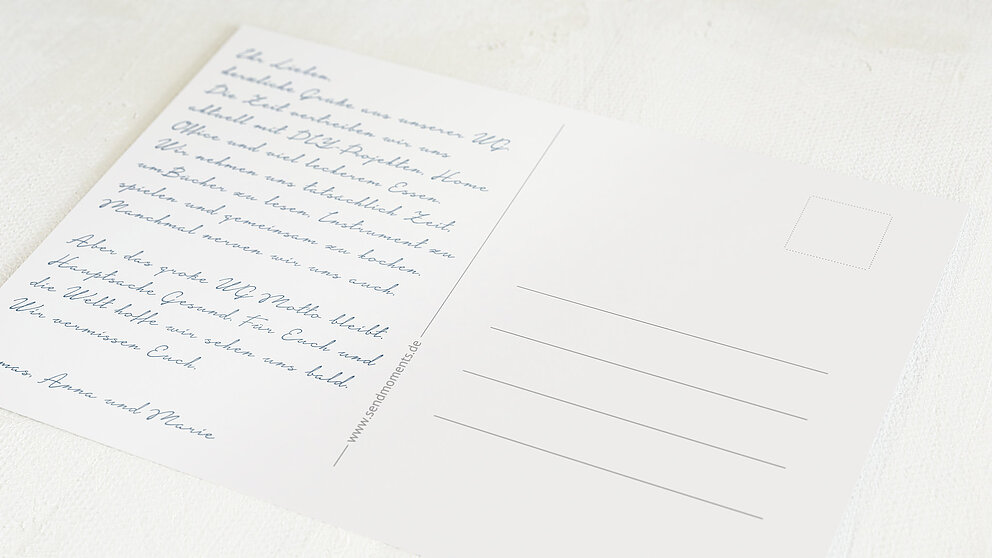 Ihr Lieben,
herzliche Grüße aus unserer WG.
Die Zeit vertreiben wir uns
aktuell mit DIY-Projekten, Home
Office und viel leckerem Essen.
Wir nehmen uns tatsächlich Zeit,
umBücher zu lesen, Instrument zu
spielen und gemeinsam zu kochen.
Manchmal nerven wir uns auch.
Aber das große WG Motto bleibt:
Hauptsache Gesund. Für Euch und
die Welt hoffe wir sehen uns bald.
Wir vermissen Euch.
Anna und Marie
www.sendmoments.de